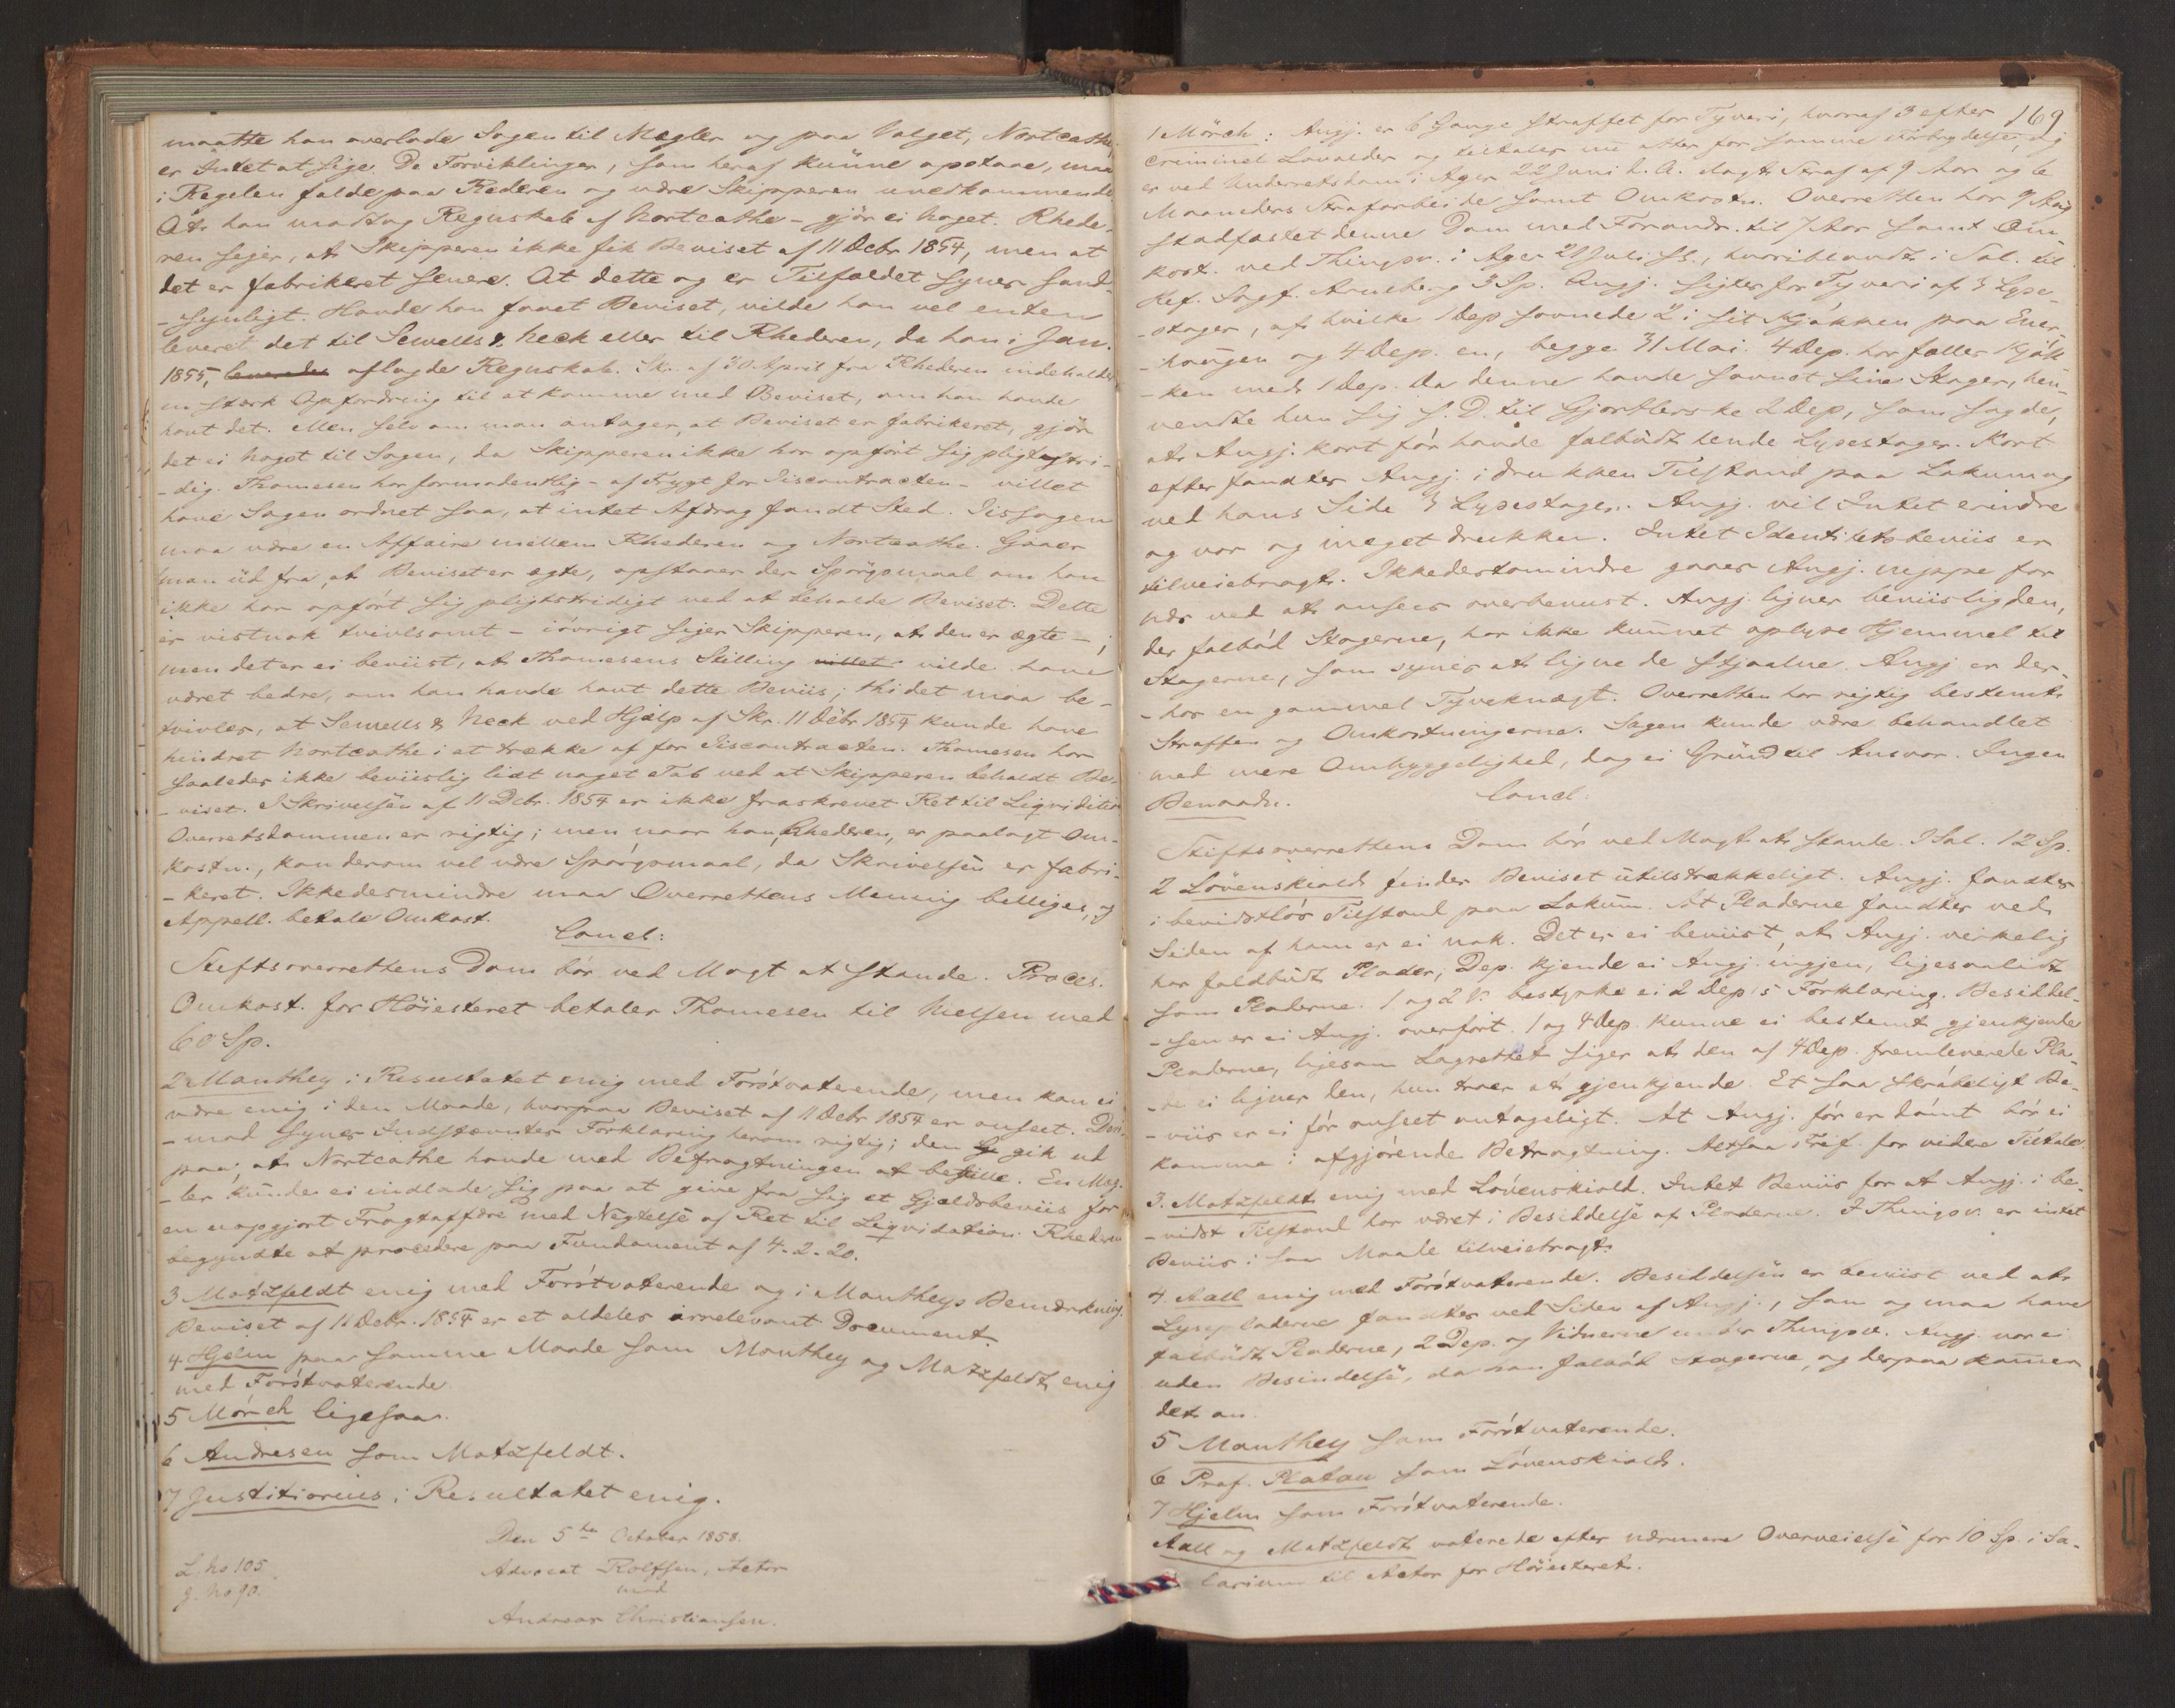 maatte han overlade Sagen til Mægler og paa Valget, Nortcathe,
er Intet at sige. De Forviklinger, som heraf kunne opstaae, maa
i Regelen falde paa Rederen og være Skipperen uvedkommende
At han modtog Regnskab af Nortcathe - gjør ei noget. Rhede-
ren siger, at Skipperen ikke fik Beviset af 11 Decbr 1854, men at
det er fabrikeret senere. At dette og er Tilfældet synes sand-
-synligt. Havde han faaet Beviset, vilde han vel enten
leveret det til Sewells & Neck eller til Rhederen, da han i Jan.
1855, leverede aflagde Regnskab. Sk. af 30 April fra Rhederen indeholder
en stærk Opfordring til at komme med Beviset, om han havde
havt det. Men selv om man antager, at Beviset er fabrikeret, gjør
det ei noget til Sagen, da Skipperen ikke har opført sig pligtstri-
-dig. Thomesen har formodentlig - af Frygt for Iiscontracten - villet
have Sagen ordnet saa, at intet Afdrag fandt Sted. Iissagen
maa være en Affaire mellem Rhederen og Nortcathe. Gaaer
man ud fra, at Beviset er ægte, opstaaer der Spørgsmaal om han
ikke har opført sig pligtstridigt ved at beholde Beviset. Dette
er vistnok tvivlsomt - iøvrigt siger Skipperen, at den er ægte -;
men det er ei beviist, at Thomesens Stilling villet vilde have
været bedre, om han havde havt dette Beviis; thi det maa be-
tvivles, at Sewells & Neck ved Hjælp af Skr. 11 Decbr 1854 kunde have
hindret Nortcathe i at trække af for Iiscontracten. Thomesen har
saaledes ikke beviislig lidt noget Tab ved at Skipperen beholdt Be-
-viset. I Skrivelsen af 11 Decbr. 1854 er ikke fraskrevet Ret til Liqvidation
Overretsdommen er rigtig; men naar han, Rhederen, er paalagt Om-
kostn., kan derom vel være Spørgsmaal, da Skrivelsen er fabri-
-keret. Ikkedesmindre maa Overrettens Mening billiges, og
Appell. betale Omkost.
Concl:
Stiftsoverrettens Dom bør ved Magt at stande. Proces.
Omkost. for Høiesteret betaler Thomesen til Nielsen med
60 Sp.
2 Manthey i Resultatet enig med Førstvoterende, men kan ei
være enig i den Maade, hvorpaa Beviset af 11 Decbr 1854 er anseet. Deri-
-mod synes Indstævntes Forklaring herom rigtig; den gik ud
paa, at Nortcathe havde med Befragtningen at bestille. En Mæg-
-ler kunde ei indlade sig paa at give fra sig et Gjældsbeviis for
en uopgjort Fragtaffære med Negtelse af Ret til Liqvidation. Rhederen
begyndte at procedere paa Fundament af 4-2-20.
3 Motzfeldt enig med Førstvoterende og i Mantheys Bemærkning.
Beviset af 11 Decbr. 1854 er et aldeles irrelevant Document.
4. Hjelm paa samme Maade som Manthey og Motzfeldt enig
med Førstvoterende.
5 Mørch ligesaa.
6 Andresen som Motzfeldt.
7 Justitiarius i Resultatet enig.
Den 5te October 1858.
L. No 105.
J. No 90.
Advocat Rolfsen, Actor
mod
Andreas Christiansen.
169
1 Mörch: Angj. er 6 Gange straffet for Tyveri, hvoraf 3 efter
criminel Lavalder og tiltales nu atter for samme Forbrydelse, og
er ved Underretsdom i Ager 22 Juni d. A. idagt Straf af 9 Aar og 6
Maaneders Strafarbeide samt Omkostn. Overretten har 9 Aug
stadfæstet denne Dom med Forandr. til 7 Aar samt Om
kost. ved Thingsv. i Ager 21 Juli ff., hvoriblandt i Sal. til
Ref. Sagf. Arneberg 3 Sp. Angj. sigtes for Tyveri af 3 Lyse-
-stager, af hvilke 1 Dep savnede 2 i sit Kjøkken paa Ener-
-haugen og 4 Dep. en, begge 31 Mai. 4 Dep. har fælles Kjøk
-ken med 1 Dep. Da denne havde savnet sine Stager, hen-
vendte hun sig s. D. til Gjørtlerske 2 Dep, som sagde,
at Angj. kort før havde falbudt hende Lysestager. Kort
efter fandtes Angj. i drukken Tilstand paa Lakum og
ved hans Side 3 Lysestager. Angj. vil Intet erindre
og var og meget drukken. Intet Identitetsbeviis er
tilveiebragt. Ikkedestomindre gaaer Angj. neppe for
nær ved at ansees overbeviist. Angj. ligner beviislig den,
der falbød Stagerne, har ikke kunnet oplyse Hjemmel til
Stagerne, som synes at ligne de stjaalne. Angj er der-
-hos en gammel Tyveknægt. Overretten har rigtig bestemt
Straffen og Omkostningerne. Sagen kunde være behandlet
med mere Omhyggelighed, dog ei Grund til Ansvar. Ingen
Benaadn.
Concl:
Stiftsoverrettens Dom bør ved Magt at stande. I Sal. 12 Sp.
2 Lövenskiold finder Beviset utilstrækkeligt. Angj. fandtes
i bevidstløs Tilstand paa Lakum. At Pladerne fandtes ved
Siden af ham er ei nok. Det er ei beviist, at Angj. virkelig
har faldbudt Plader, Dep. kjende ei Angj. igjen, ligesaalidt
som Pladerne. 1 og 2 V. bestyrke ei 2 Dep's Forklaring. Besiddel-
-sen er ei Angj. overført. 1 og 4 Dep. kunne ei bestemt gjenkjende
Pladerne, ligesom Lagrettet siger at den af 4 Dep. fremleverede Pla-
-de ei ligner den, hun troer at gjenkjende. Et saa skrøbeligt Be-
-viis er ei før anseet antageligt. At Angj. før er dømt bør ei
komme i afgjørende Betragtning. Altsaa Frif. for videre Tiltale
3. Motzfeldt enig med Lövenskiold. Intet Beviis for at Angj. i be-
-vidst Tilstand har været i Besiddelse af Pladerne. I Thingsv. er intet
Beviis i saa Maade tilveiebragt.
4. Aall enig med Førstvoterende. Besiddelsen er beviist ved at
Lysepladerne fandtes ved Siden af Angj., som og maa have
falbudt Pladerne, 2 Dep. og Vidnerne under Thingsv. Angj. var ei
uden Besindelse, da han falbød Stagerne, og derpaa kommer
det an.
5 Manthey som Førstvoterende.
6 Prof. Platou som Lövenskiold.
7 Hjelm som Førstvoterende.
Aall og Motzfeldt voterede efter nærmere Overveielse for 10 Sp. i Sa-
larium til Actor for Höiesteret.